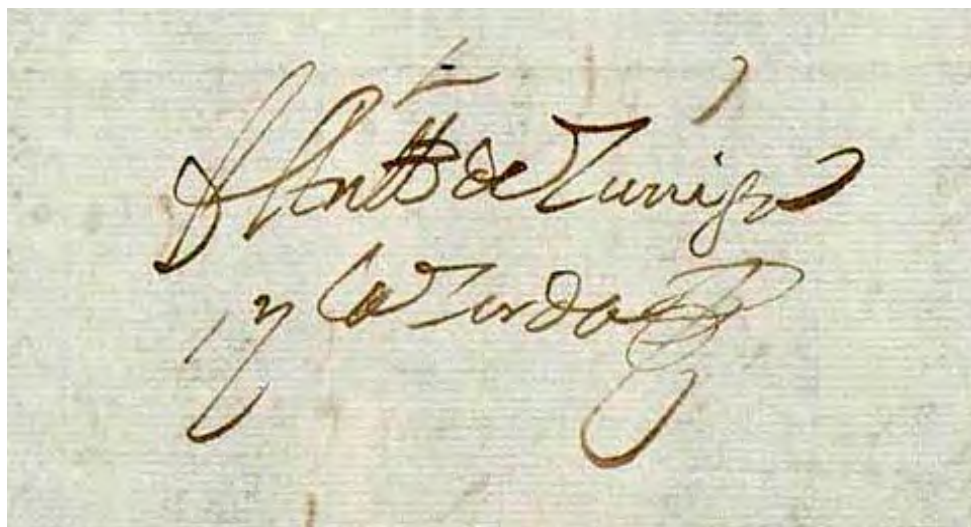 Antto de Zuniga
y la Zerda